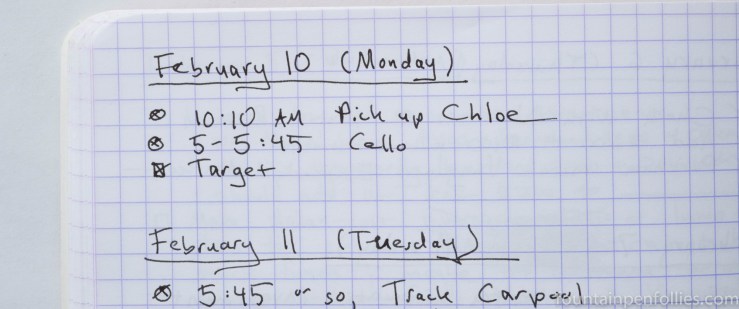 February 10 (Monday)
10:10 AM Pick up Chloe
5-5:45 Cello
Target
February 11 (Tuesday)
5:45 or so, Track Carpool
fountainpenfollies.com